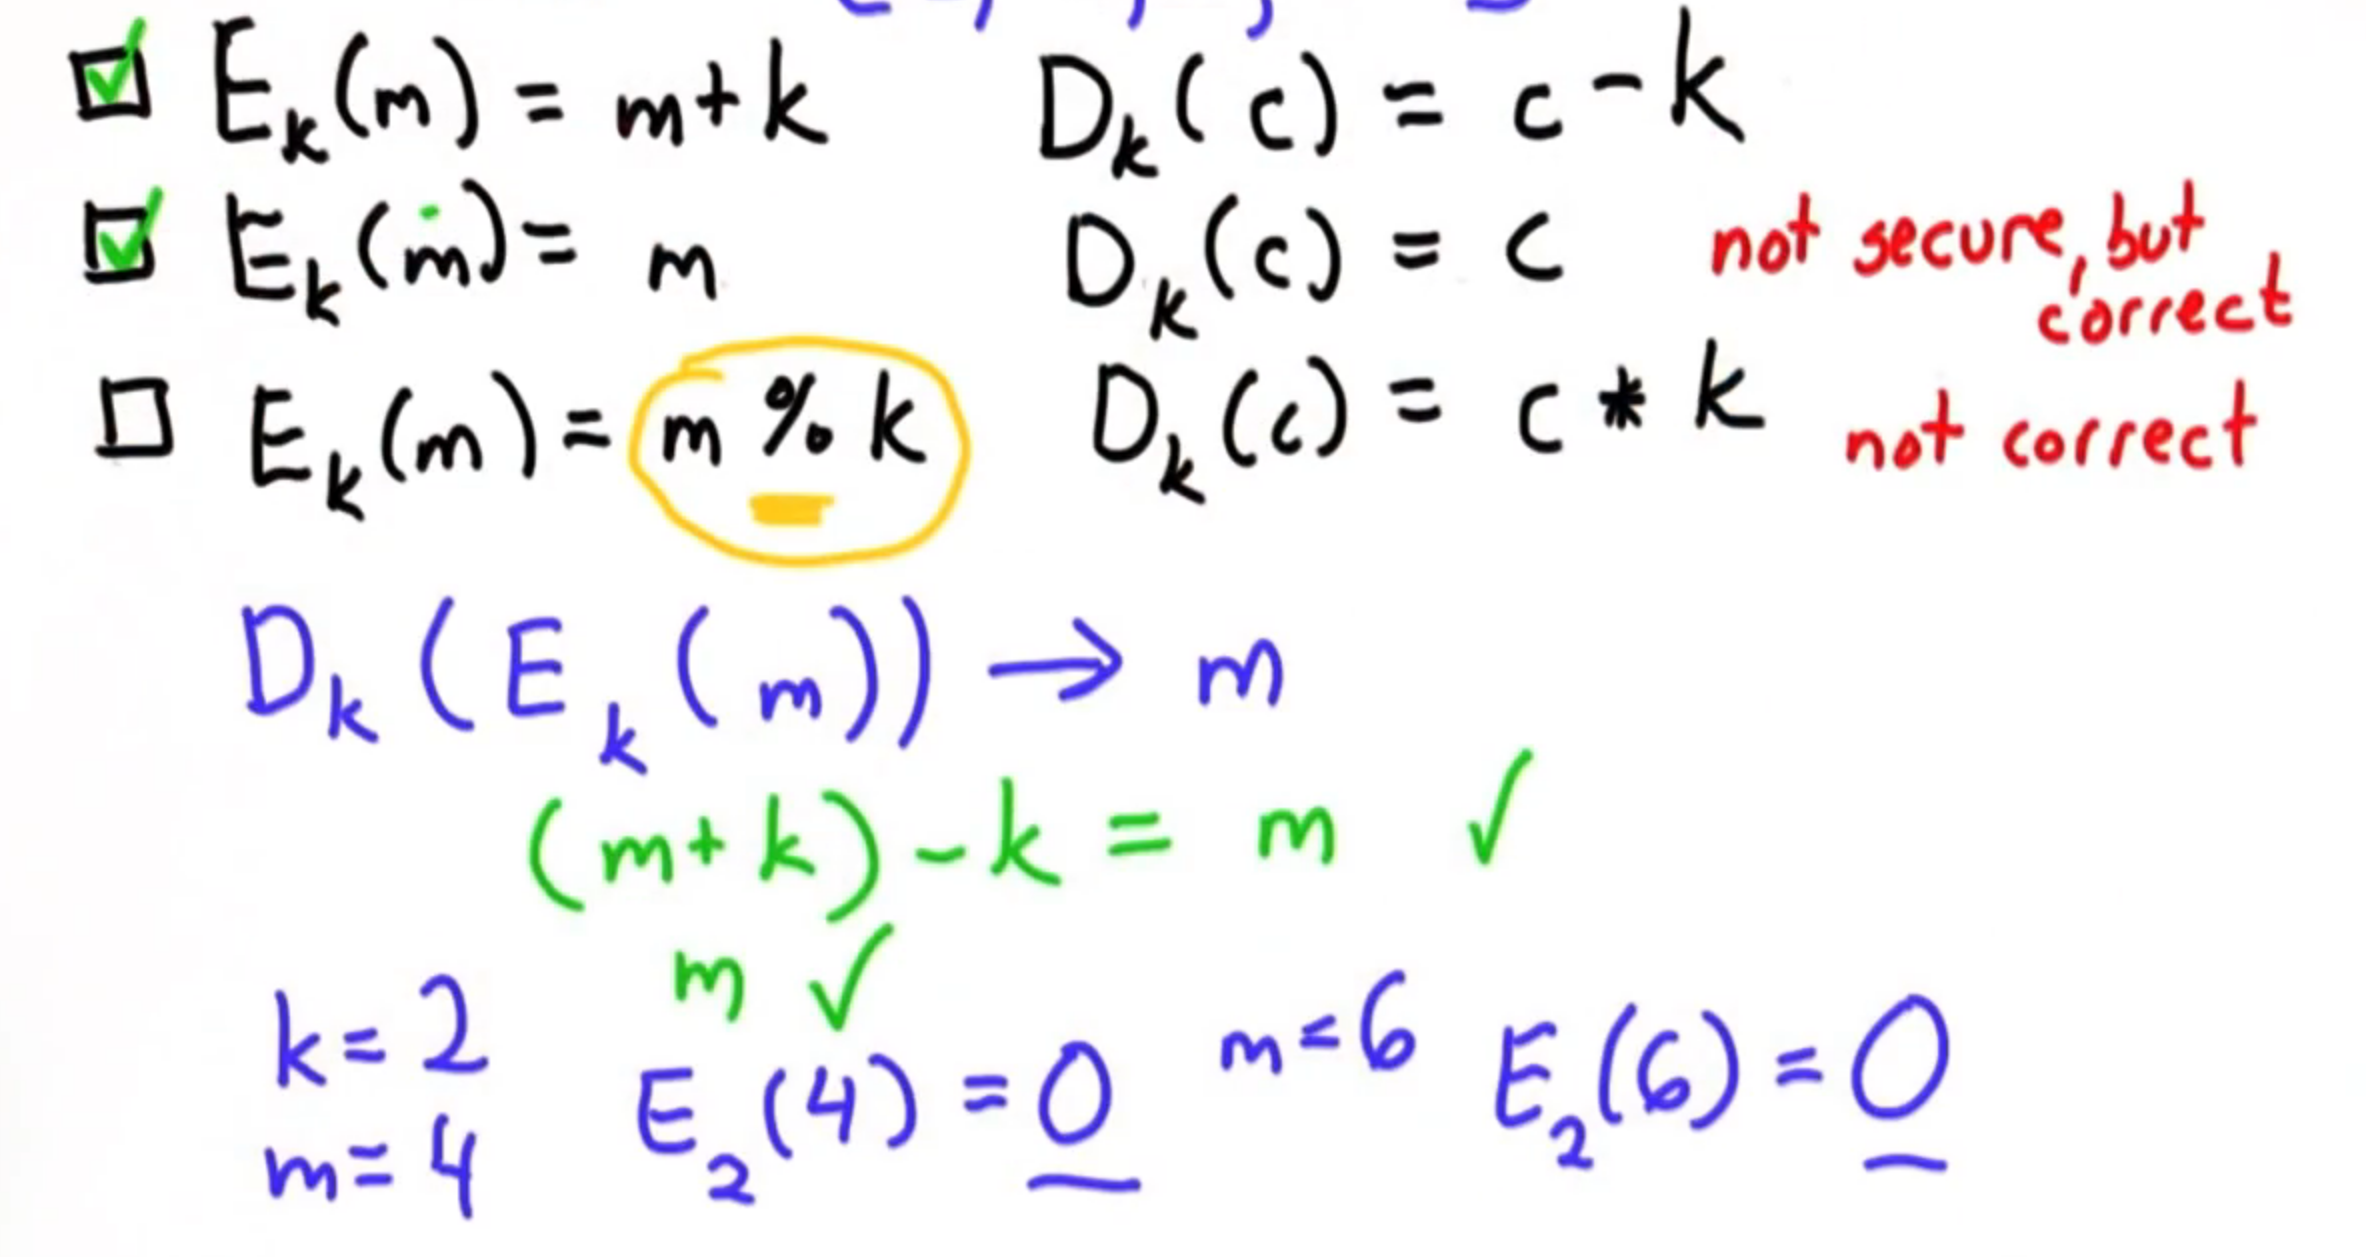 E_k(m) = m+k D_k(c) = c - k
E_k(m) = m D_k(c) = c not secure, but correct
E_k(m) = m % k D_k(c) = c * k not correct
D_k(E_k(m)) → m
(m+k) - k = m ✓
m ✓
k = 2
m = 4 E_2(4) = 0 m = 6 E_2(6) = 0